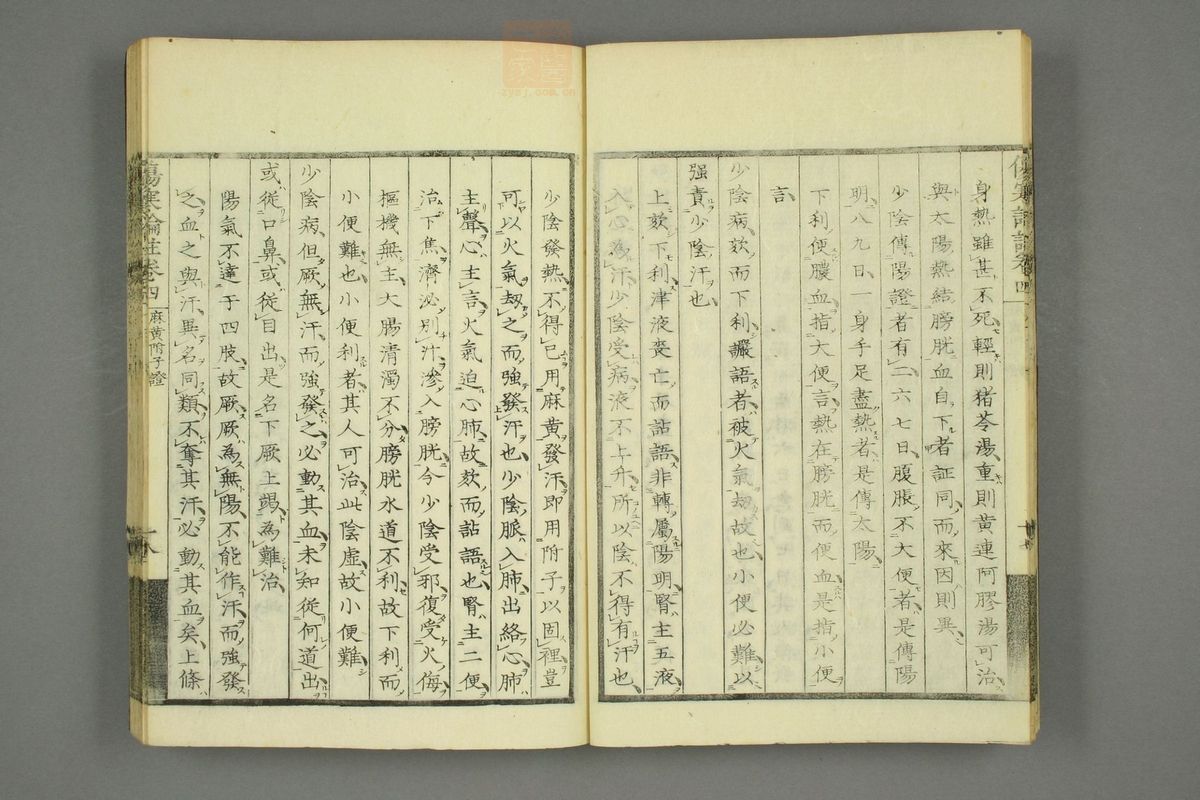 身熱雖甚不死輕則猪苓湯重則黄連阿膠湯可治
與太陽熱結膀胱血自下者証同而來因則異
少陰傳陽證者有二六七日腹脹不大便者是傳陽
明八九日一身手足盡熱者是傳太陽
下利便膿血指大便言熱在膀胱而便血是指小便
言
少陰病欬而下利讝語者被火氣刼故也小便必難以
强責少陰汗也
上欬下利津液喪亡而詀語非轉屬陽明腎主五液
入心為汗少陰受病液不上升所以陰不得有汗也
少陰發熱不得已用麻黄發汗即用附子以固裡豈
可以火氣刼之而強發汗也少陰脈入肺出絡心肺
主聲心主言火氣迫心肺故欬而詀語也腎主二便
治下焦濟泌别汁滲入膀胱今少陰受邪復受火侮
樞機無主大腸清濁不分膀胱水道不利故下利而
小便難也小便利者其人可治此陰虚故小便難
少陰病但厥無汗而強發之必動其血未知從何道出
或從口鼻或從目出是名下厥上竭為難治
陽氣不達于四肢故厥厥為無陽不能作汗而強發
之血之與汗異名同類不奪其汗必動其血矣上條
傷寒論註卷四
麻黄附子證
十八
zysj.com.cn